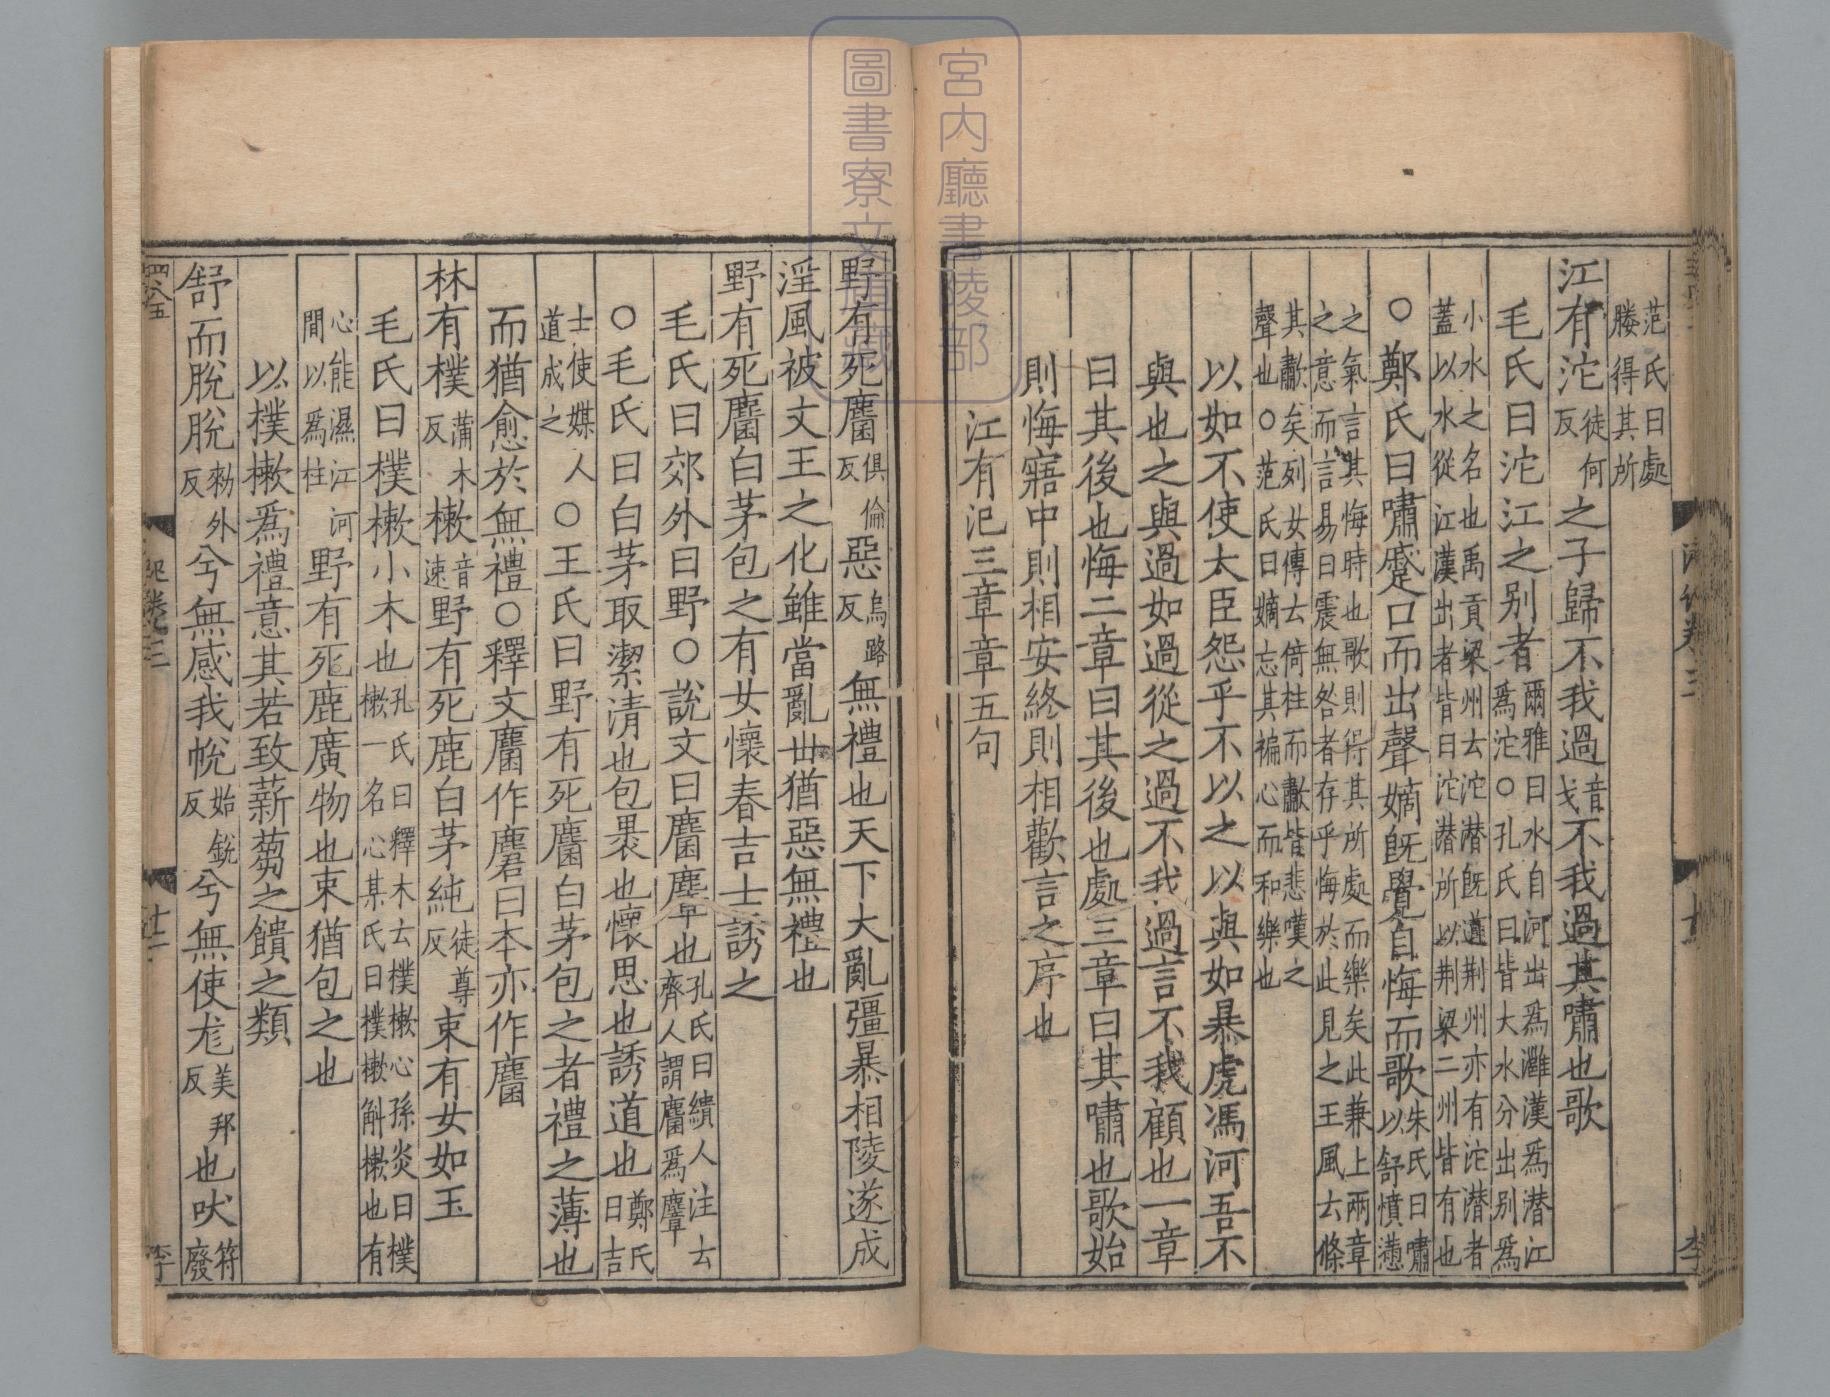 范氏曰處
媵得其所
江有沱徒何反之子歸不我過音戈不我過其嘯也歌
毛氏曰沱江之別者爾雅曰水自河出爲灉漢爲潛江爲沱○孔氏曰皆大水分出別爲
小水之名也禹貢梁州云沱潛旣道荆州亦有沱潛者蓋以水從江漢出者皆曰沱潛所以荆梁二州皆有也
○鄭氏曰嘯蹙口而出聲嫡旣覺自悔而歌朱氏曰嘯以舒憤懣
之氣言其悔時也歌則得其所處而樂矣此兼上兩章之意而言易曰震無咎者存乎悔於此見之王風云條
其歗矣列女傳云倚柱而歗皆悲嘆之聲也○范氏曰嫡忘其褊心而和樂也
以如不使大臣怨乎不以之以與如暴虎馮河吾不
與也之與過如過從之過不我過言不我顧也一章
曰其後也悔二章曰其後也處三章曰其嘯也歌始
則悔寤中則相安終則相歡言之序也
江有汜三章章五句
野有死麕俱倫反惡烏路反無禮也天下大亂彊暴相陵遂成
淫風被文王之化雖當亂世猶惡無禮也
野有死麕白茅包之有女懷春吉士誘之
毛氏曰郊外曰野○說文曰麕麞也孔氏曰繢人注云齊人謂麕爲麞
○毛氏曰白茅取潔清也包裹也懷思也誘道也鄭氏曰吉
士使媒人道成之○王氏曰野有死麕白茅包之者禮之薄也
而猶愈於無禮○釋文麕作麏曰本亦作麕
林有樸蒲木反樕音速野有死鹿白茅純徒尊反束有女如玉
毛氏曰樸樕小木也孔氏曰釋木云樸樕心孫炎曰樸樕一名心某氏曰樸樕斛樕也有
心能濕江河間以爲柱野有死鹿廣物也束猶包之也
以樸樕爲禮意其若致薪芻之饋之類
舒而脫脫勑外反兮無感我帨始銳反兮無使尨美邦反也吠符廢
四八五
記卷三
十二
李